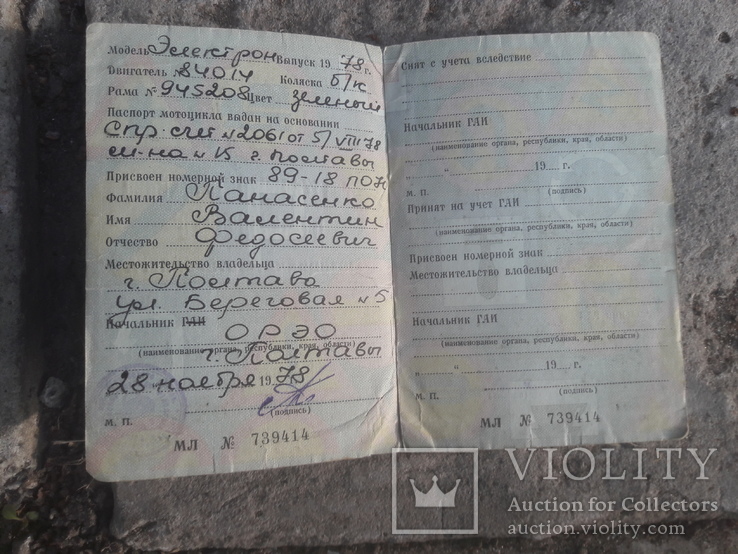 Модель Электрон Выпуск 1978 г.
Двигатель № 84014 Коляска б/к
Рама № 945208 Цвет зеленый
Паспорт мотоцикла выдан на основании
Спр. счет № 2061 от 5/VIII 78
м-на № 15 г. Полтавы
Присвоен номерной знак 89-18 ПОН
Фамилия Панасенко
Имя Валентин
Отчество Федосеевич
Местожительство владельца
г. Полтава
ул. Береговая № 5
Начальник ГАИ ОРЭО
(наименование органа, республики, края, области)
г. Полтавы
28 ноября 1978
(подпись)
М. П.
МЛ № 739414
Снят с учета вследствие
Начальник ГАИ
(наименование органа, республики, края, области)
" " 19 г.
М. П. (подпись)
Принят на учет ГАИ
(наименование органа, республики, края, области)
Присвоен номерной знак
Местожительство владельца
Начальник ГАИ
(наименование органа, республики, края, области)
" " 19 г.
(подпись)
М. П.
МЛ № 739414
VIOLITY
Auction for Collectors
auction.violity.com